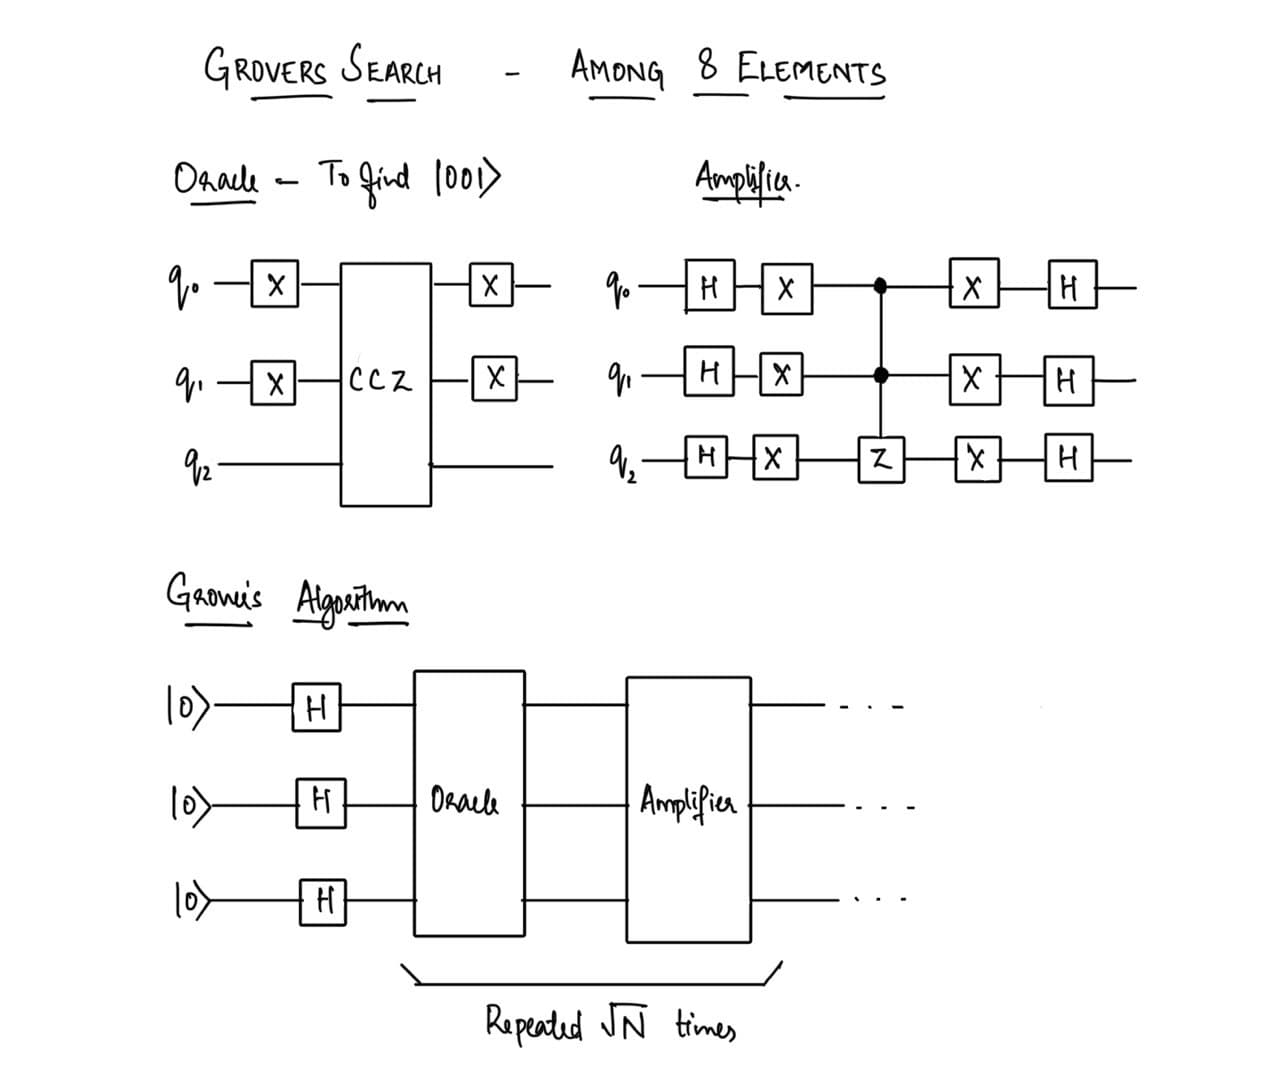 GROVERS SEARCH - AMONG 8 ELEMENTS
Oracle - To find |001⟩
Amplifier.
q₀ X X
q₁ X CCZ X
q₂
q₀ H X X H
q₁ H X X H
q₂ H X Z X H
Grover's Algorithm
|0⟩ H
|0⟩ H Oracle Amplifier
|0⟩ H
Repeated √N times